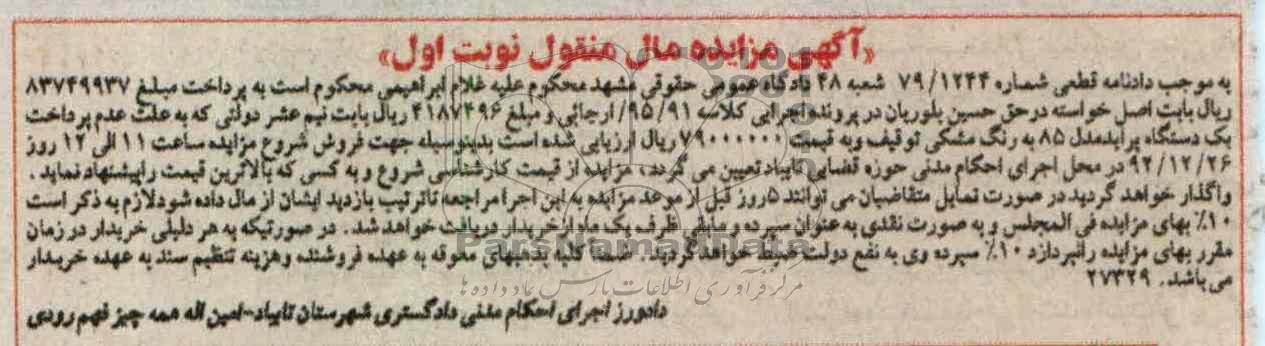 «آگهی مزایده مال منقول نوبت اول»
به موجب دادنامه قطعی شماره ۷۹/۱۲۴۴ شعبه ۴۸ دادگاه عمومی حقوقی مشهد محکوم علیه غلام ابراهیمی محکوم است به پرداخت مبلغ ۸۳۷۴۹۹۳۷
ریال بابت اصل خواسته درحق حسین بلوریان در پرونده اجرایی کلاسه ۹۵/۹۱/ارجائی و مبلغ ۴۱۸۷۴۹۶ ریال بابت نیم عشر دولتی که به علت عدم پرداخت
یک دستگاه پرایدمدل ۸۵ به رنگ مشکی توقیف وبه قیمت ۷۹۰۰۰۰۰۰ ریال ارزیابی شده است بدینوسیله جهت فروش شروع مزایده ساعت ۱۱ الی ۱۲ روز
۹۲/۱۲/۲۶ در محل اجرای احکام مدنی حوزه قضایی تایباد تعیین می گردد، مزایده از قیمت کارشناسی شروع و به کسی که بالاترین قیمت راپیشنهاد نماید.
واگذار خواهد گردید در صورت تمایل متقاضیان می توانند ۵روز قبل از موعد مزایده به این اجرا مراجعه تاترتیب بازدید ایشان از مال داده شودلازم به ذکر است
۱۰٪ بهای مزایده فی المجلس و به صورت نقدی به عنوان سپرده و مابقی ظرف یک ماه ازخریدار دریافت خواهد شد. در صورتیکه به هر دلیلی خریدار در زمان
مقرر بهای مزایده رانپردازد ۱۰٪ سپرده وی به نفع دولت ضبط خواهد گردید. ضمنا کلیه بدهیهای معوقه به عهده فروشنده وهزینه تنظیم سند به عهده خریدار
می باشد. ۲۷۳۲۹
دادورز اجرای احکام مدنی دادگستری شهرستان تایباد-امین اله همه چیز فهم رودی
ParsNamadData
مرکز فرآوری اطلاعات پارس نماد داده ها